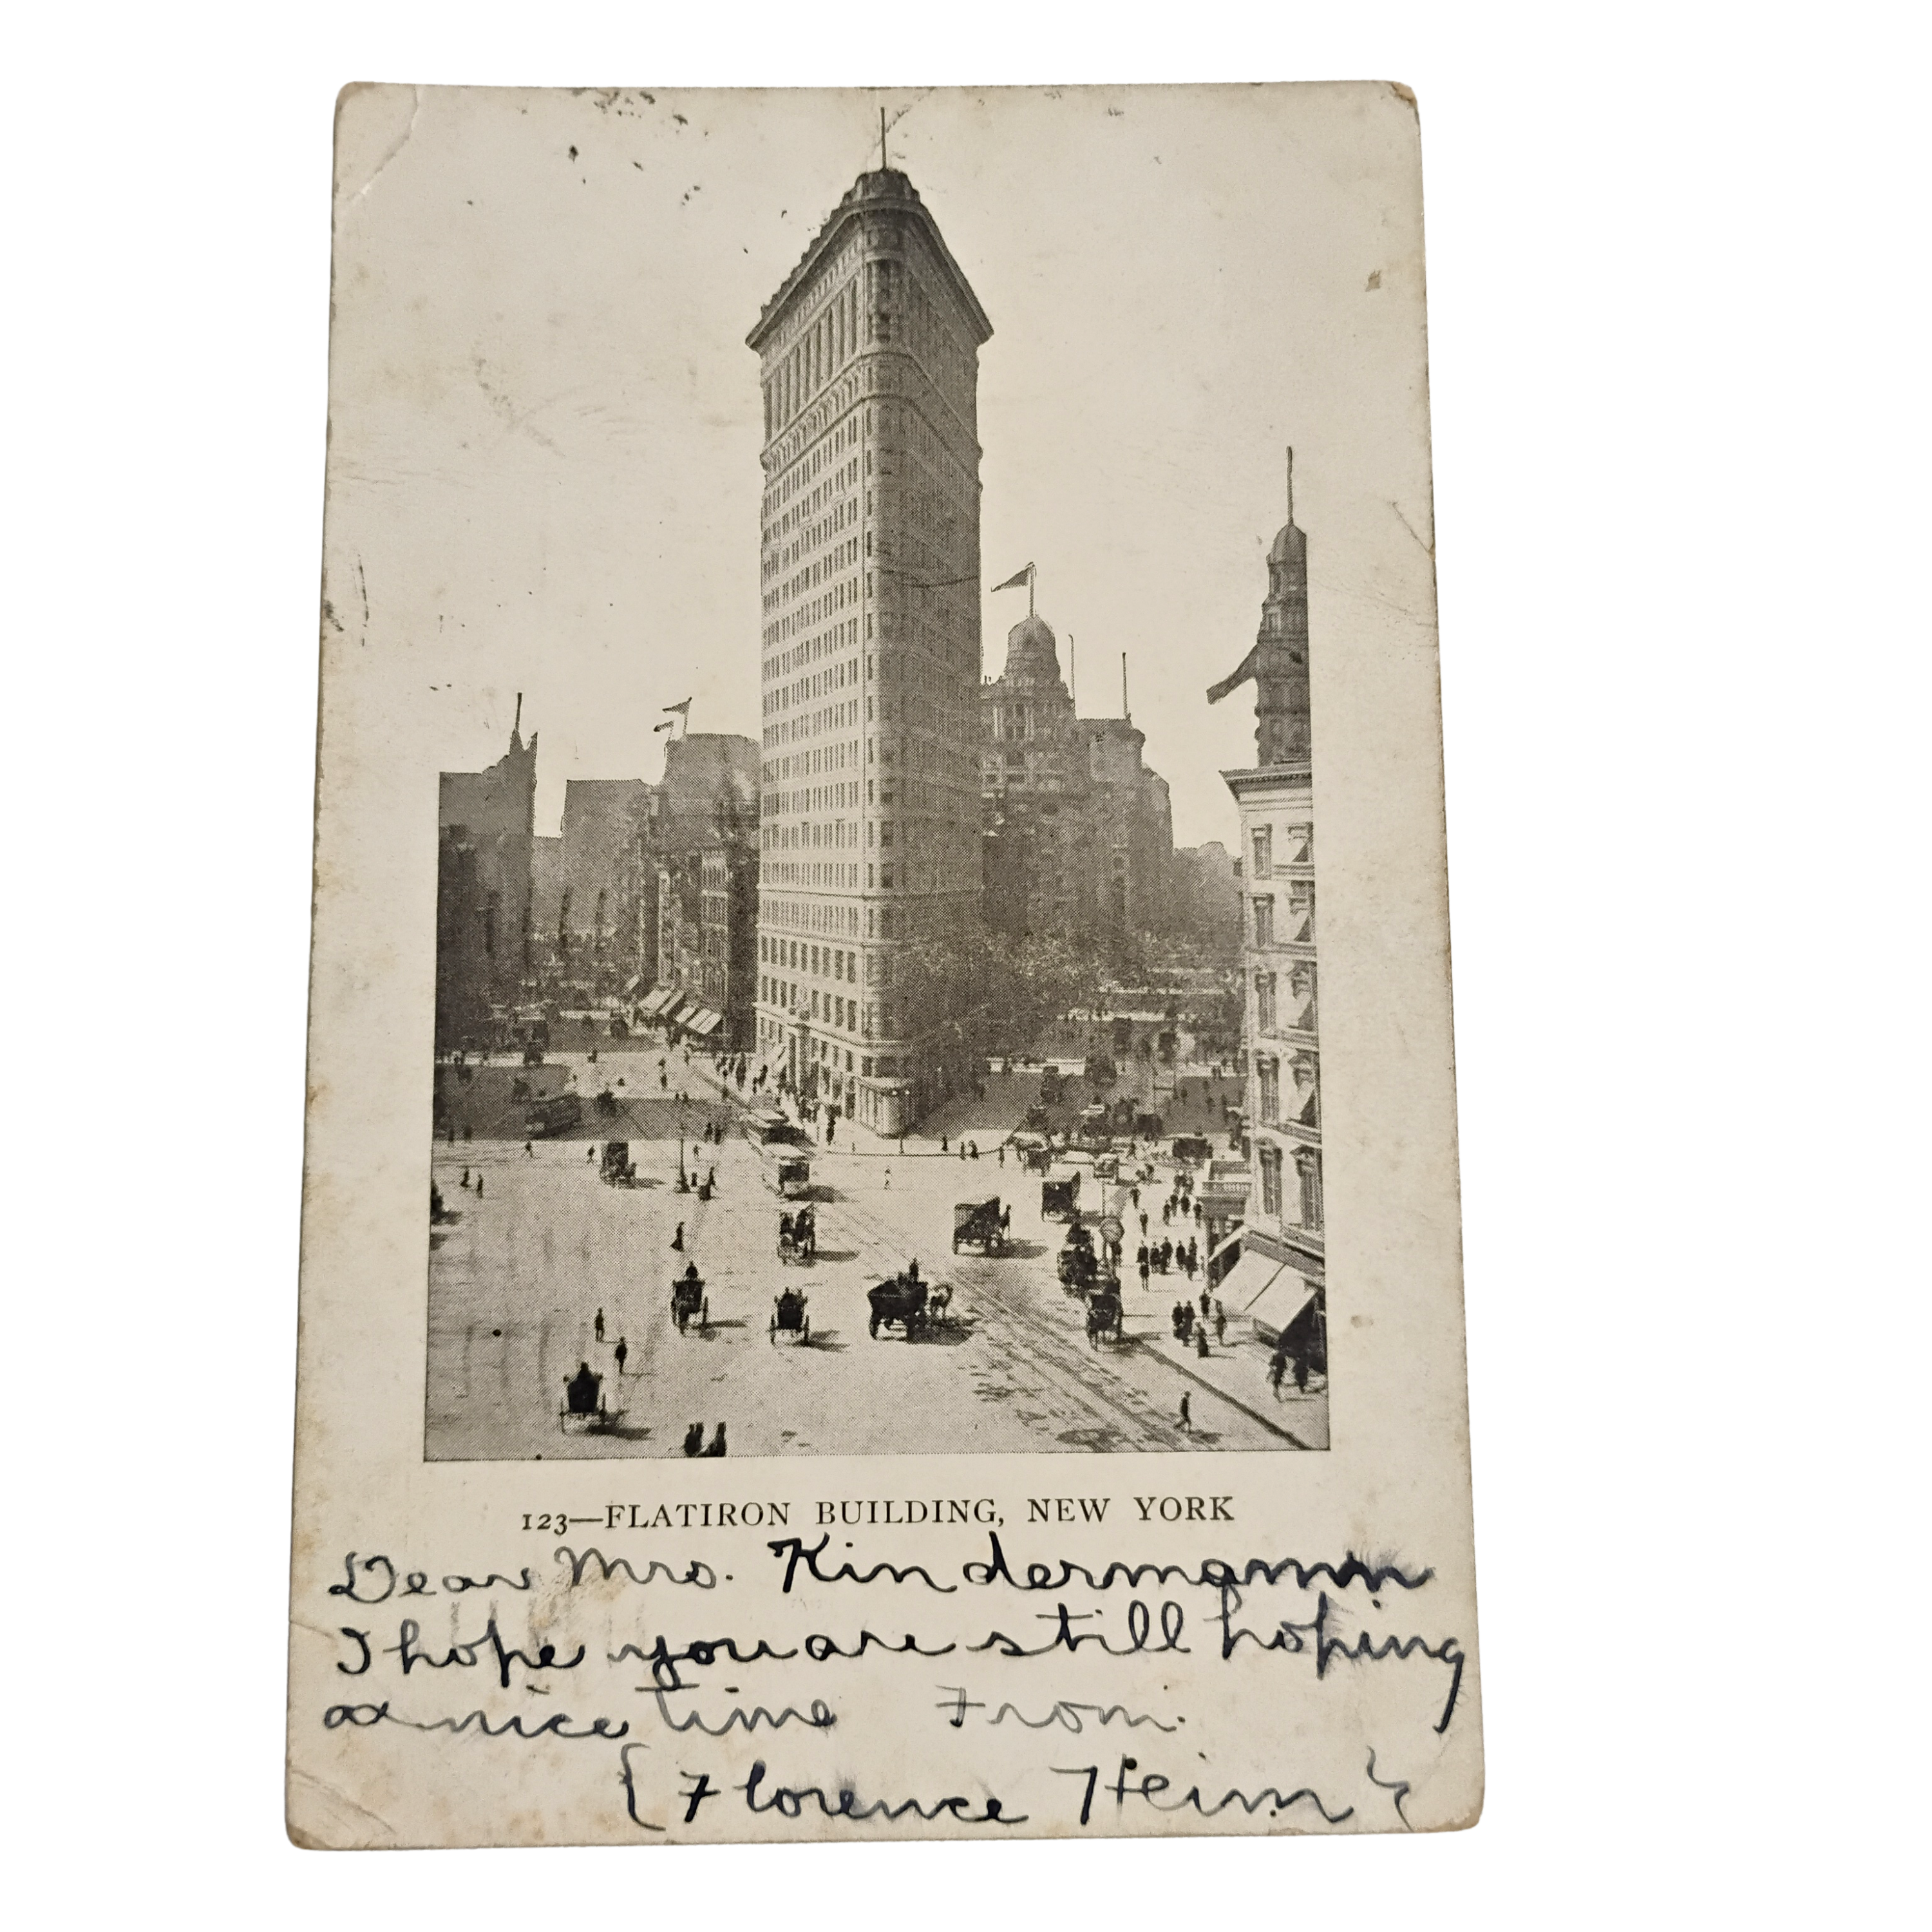 123—FLATIRON BUILDING, NEW YORK
Dear Mrs. Kindermann
I hope you are still hoping
a nice time From.
{Florence Heim}